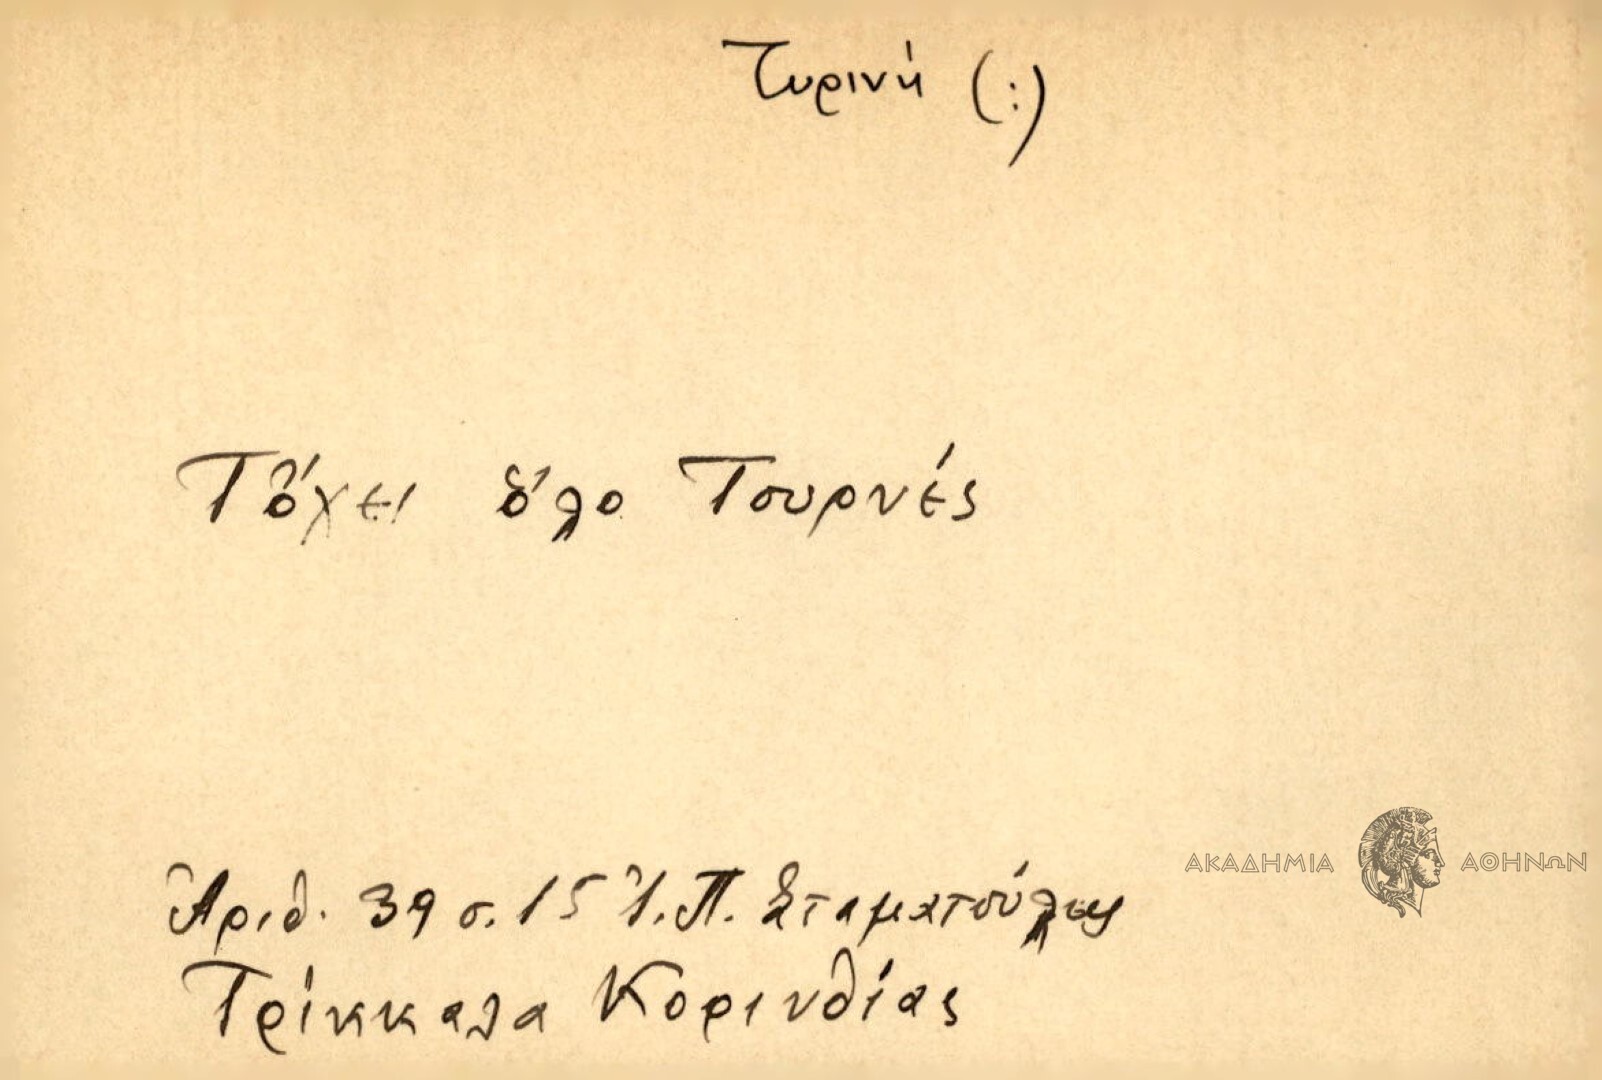 Τυρινή (:)
Τὄχει ὅλο Τουρνές
Ἀριθ. 39 σ. 15 Ἰ. Π. Σταματούλης
Τρίκκαλα Κορινθίας
ΑΚΑΔΗΜΙΑ ΑΘΗΝΩΝ